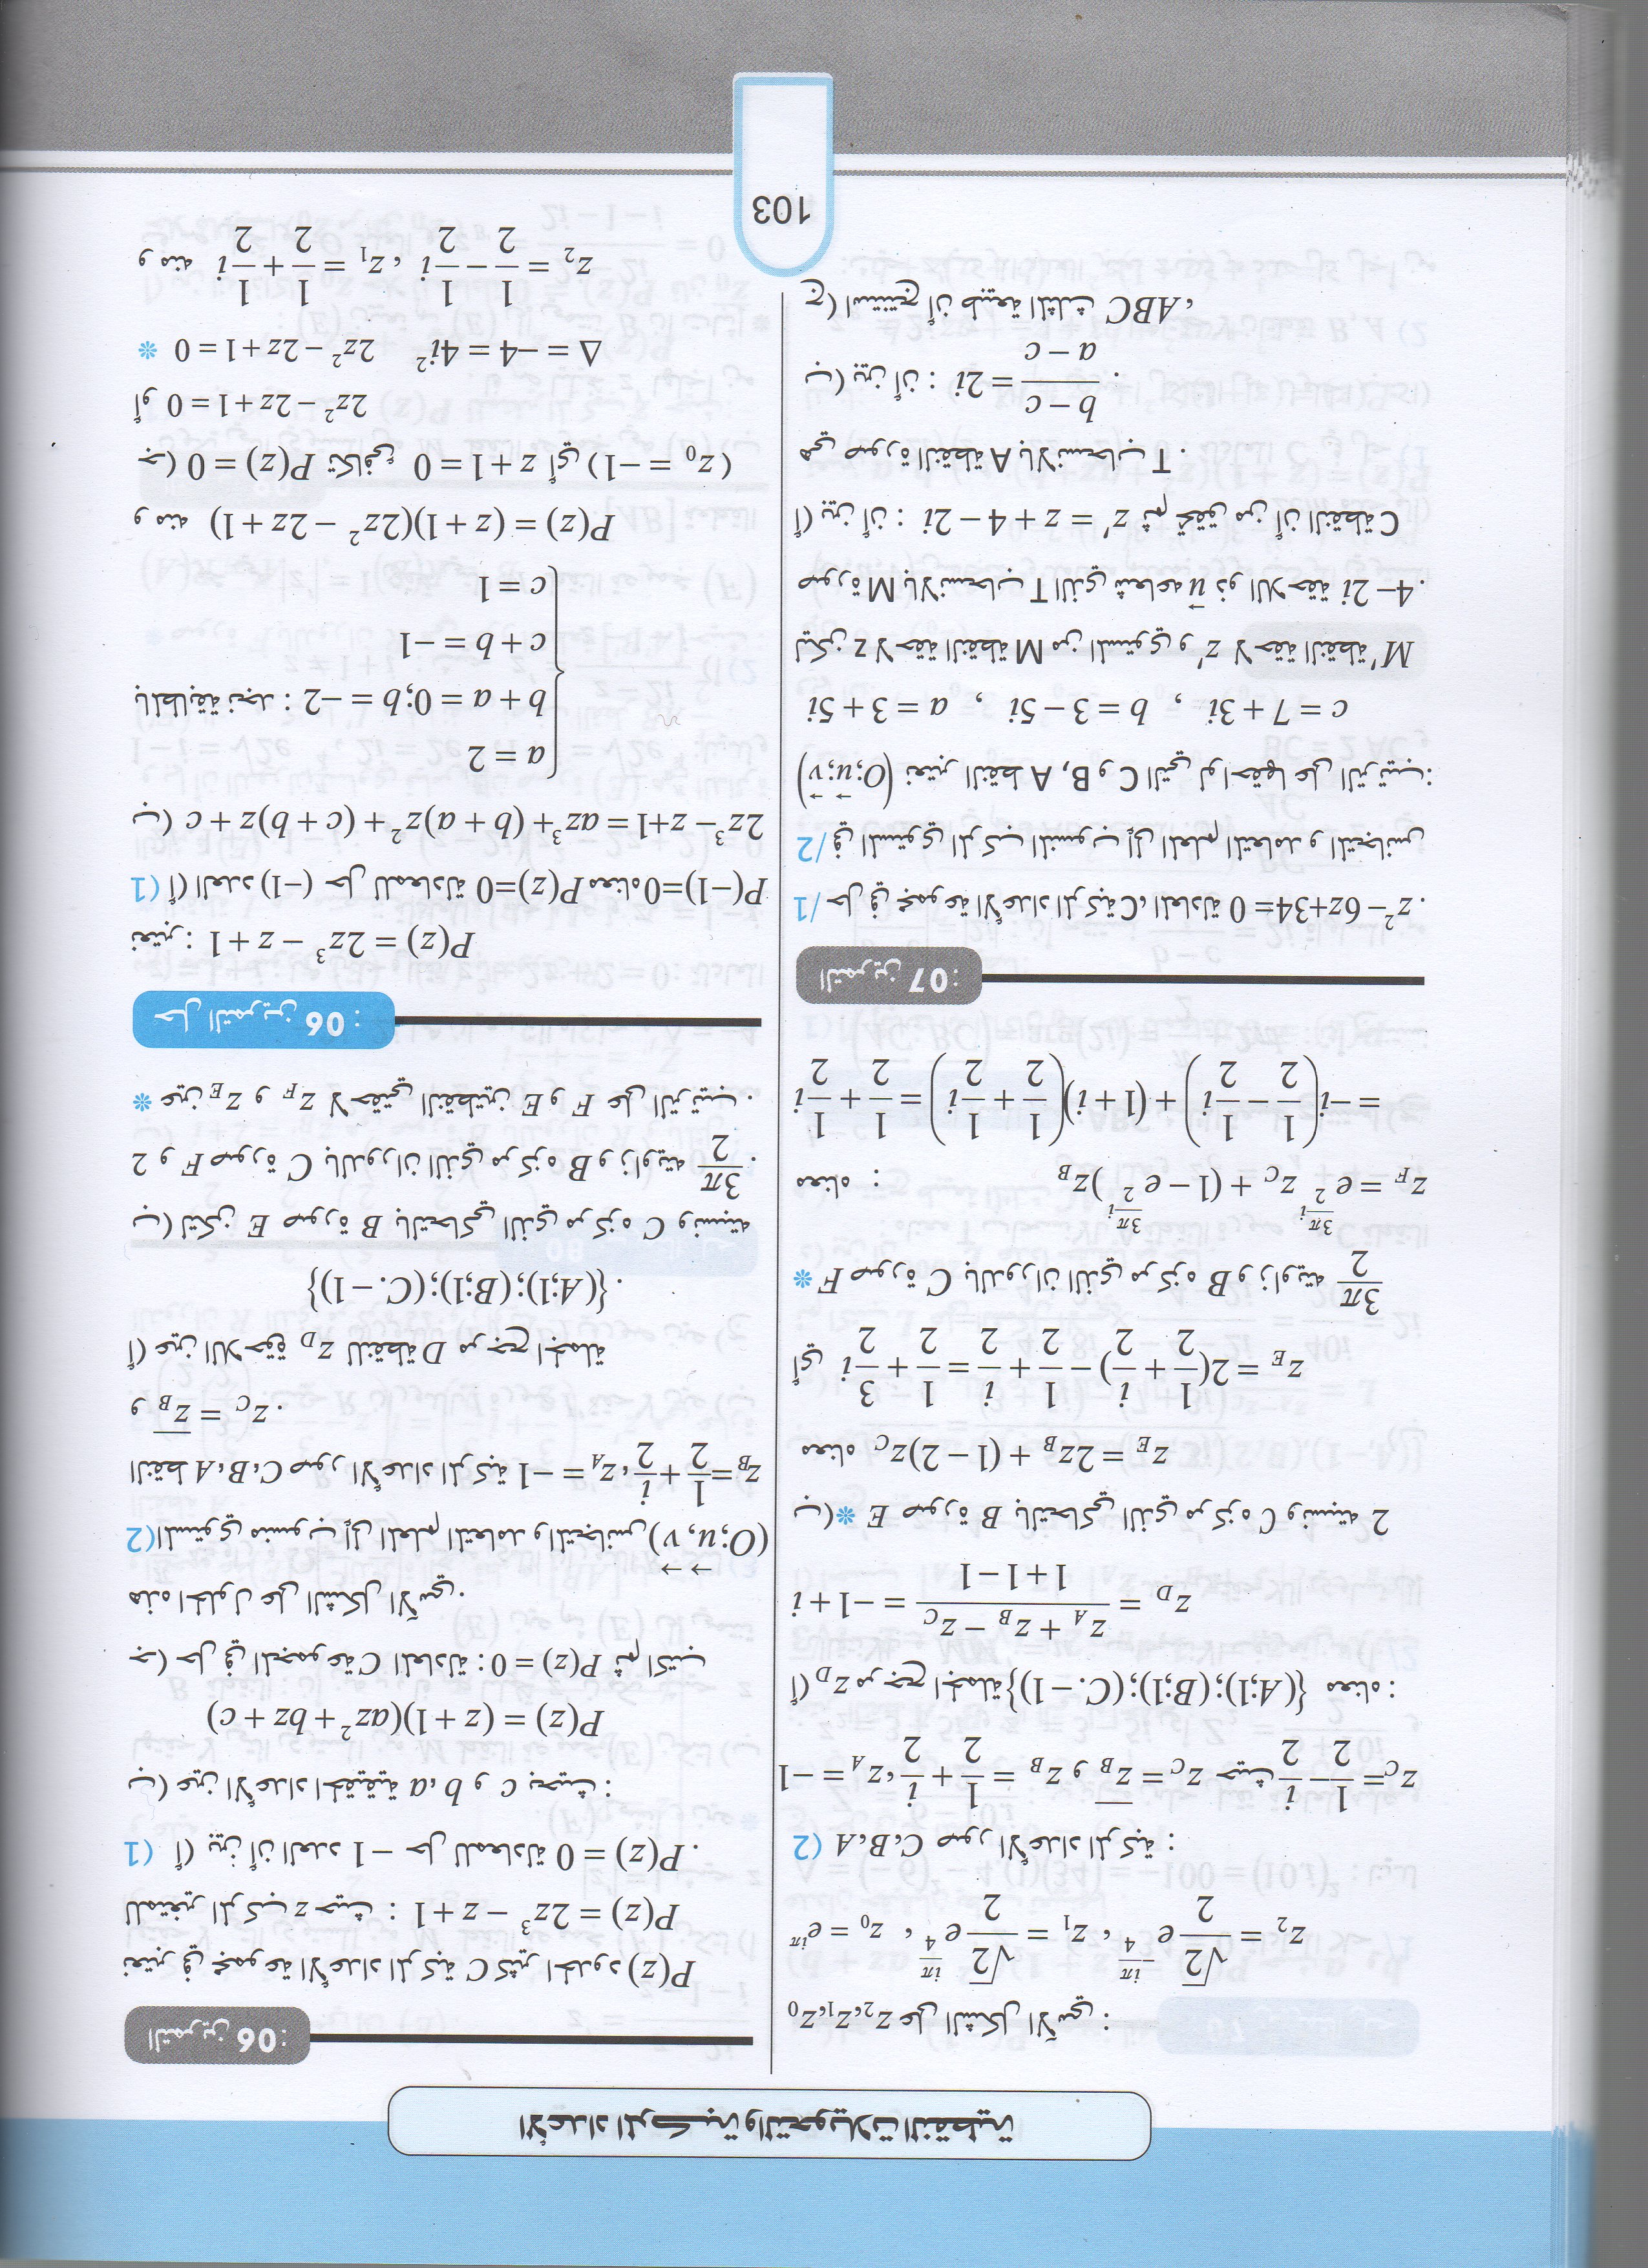 الأعداد المركبة والتحويلات النقطية
التمرين 06:
نعتبر في مجموعة الأعداد المركبة C كثير الحدود P(z)
للمتغير المركب z حيث : P(z) = 2z³ − z + 1
1) أ) بيّن أن العدد −1 حل للمعادلة P(z) = 0 .
ب) عين الأعداد الحقيقية a، b و c بحيث :
P(z) = (z + 1)(az² + bz + c)
جـ) حل في المجموعة C المعادلة : P(z) = 0 ثم اكتب
هذه الحلول على الشكل الآسي.
2) المستوي منسوب إلى المعلم المتعامد والمتجانس (O; u⃗, v⃗)
النقط A، B، C صور الأعداد المركبة z_A = −1، z_B = 1/2 + i/2
و z_C = z̄_B .
أ) عين اللاحقة z_D للنقطة D مرجح الجملة
{(A;1);(B;1);(C.−1)} .
ب) لتكن E صورة B بالتحاكي الذي مركزه C ونسبته
2 و F صورة C بالدوران الذي مركزه B و زاويته 3π/2 .
* عين z_E و z_F لاحقتي النقطتين E و F على الترتيب .
حل التمرين 06 :
نعتبر: P(z) = 2z³ − z + 1
1) أ) العدد (−1) حل للمعادلة P(z)=0 معناه P(−1)=0
ب) 2z³ − z+1 = az³ + (b + a)z² + (c + b)z + c
a = 2
بالمطابقة نجد : b + a = 0; b = −2
c + b = −1
c = 1
و منه P(z) = (z + 1)(2z² − 2z + 1)
جـ) P(z) = 0 تكافئ z + 1 = 0 أي (z₀ = −1)
أو 2z² − 2z + 1 = 0
* 2z² − 2z + 1 = 0 Δ = −4 = 4i²
و منه z₁ = 1/2 + 1/2 i ، z₂ = 1/2 − 1/2 i
z₀،z₁،z₂ على الشكل الآسي :
z₀ = e^{iπ} ، z₁ = √2/2 e^{iπ/4} ، z₂ = √2/2 e^{−iπ/4}
2) A،B،C صور الأعداد المركبة :
z_A = −1، z_B = 1/2 + i/2 و z_C = z̄_B حيث z_C = 1/2 − i/2
أ) z_D مرجح الجملة {(A;1);(B;1);(C.−1)} معناه :
z_D = (z_A + z_B − z_C)/(1+1−1) = −1 + i
ب)* E صورة B بالتحاكي الذي مركزه C ونسبته 2
معناه z_E = 2z_B + (1 − 2)z_C
أي z_E = 2(1/2 + i/2) − 1/2 + i/2 = 1/2 + 3/2 i
* F صورة C بالدوران الذي مركزه B و زاويته 3π/2
معناه : z_F = e^{3π/2 i} z_C + (1 − e^{3π/2 i})z_B
= −i(1/2 − 1/2 i) + (1 + i)(1/2 + 1/2 i) = 1/2 + 1/2 i
التمرين 07:
1/ حل في مجموعة الأعداد المركبة C، المعادلة z² − 6z+34= 0 .
2/ في المستوي المركب المنسوب إلى المعلم المتعامد و المتجانس
(O;u⃗;v⃗) نعتبر النقط A ,B و C التي لواحقها على الترتيب:
a = 3 + 5i , b = 3 − 5i , c = 7 + 3i
ليكن z لاحقة النقطة M من المستوي و z' لاحقة النقطة M'
صورة M بالانسحاب T الذي شعاعه u⃗ ذو اللاحقة 4− 2i .
أ) بين أن : z' = z + 4 − 2i ثم تحقق من أن النقطة C
هي صورة النقطة A بالانسحاب T .
ب) بين أن : (b − c)/(a − c) = 2i .
ج) استنتج أن طبيعة المثلث ABC ،
103